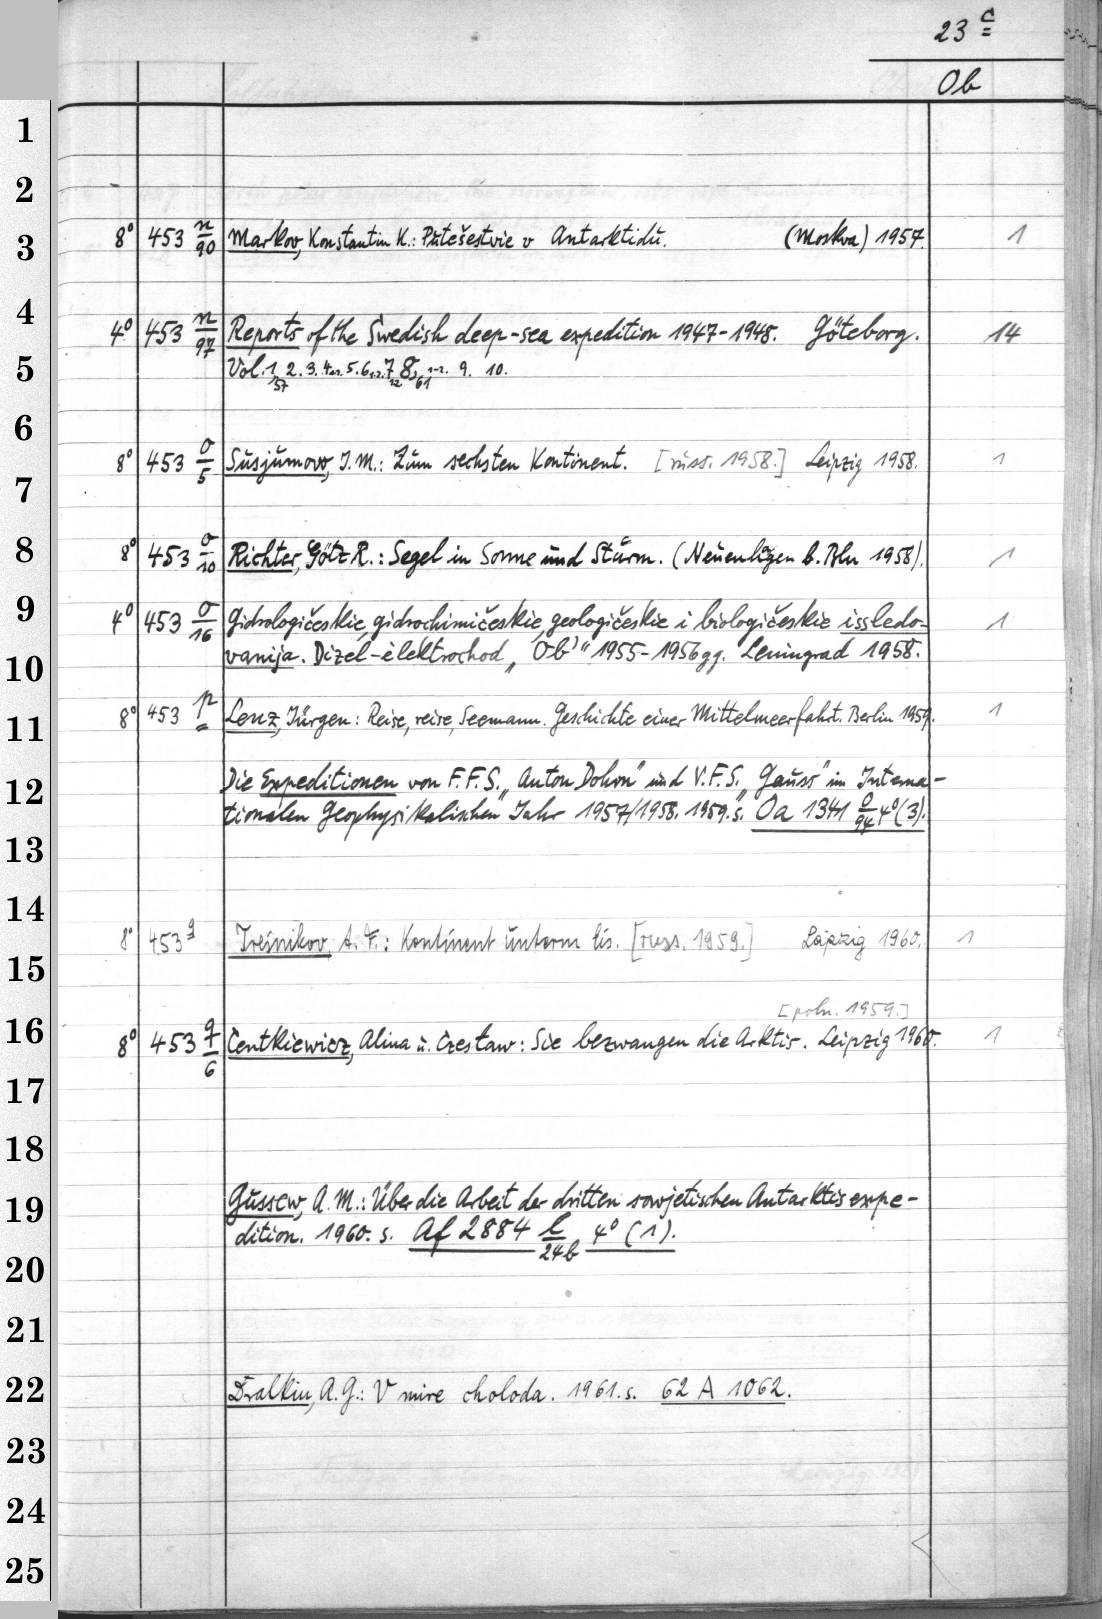 23 c
Ob
1
2
3 8° 453 n/90 Markov, Konstantin K.: Putešestvie v Antarktidu. (Moskva) 1957. 1
4 4° 453 n/97 Reports of the Swedish deep-sea expedition 1947-1948. Göteborg. 14
5 Vol. 1, 2. 3. 5. 9. 10.
6
8° 453 o/5 Susjumow, I. M.: Zum sechsten Kontinent. [russ. 1958.] Leipzig 1958. 1
7
8 8° 453 o/10 Richter, Götz R.: Segel in Sonne und Sturm. (Neuenhagen b. Bln 1958). 1
9 4° 453 o/16 Gidrologičeskie, gidrochimičeskie, geologičeskie i biologičeskie issledo- 1
10 vanija. Dizel-ėlektrochod „Ob'" 1955-1956 gg. Leningrad 1958.
11 8° 453 p Lenz, Jürgen: Reise, reise, Seemann. Geschichte einer Mittelmeerfahrt. Berlin 1959. 1
12 Die Expeditionen von F.F.S. „Anton Dohrn" und V.F.S. „Gauss" im Interna-
tionalen Geophysikalischen Jahr 1957/1958. 1959. s. Oa 1341 o/94 4°(3).
13
14
8° 453 q Trešnikov, A. F.: Kontinent unterm Eis. [russ. 1959.] Leipzig 1960. 1
15
[poln. 1959.]
16 8° 453 q/6 Centkiewicz, Alina u. Czesław: Sie bezwangen die Arktis. Leipzig 1960. 1
17
18
19 Gussew, A. M.: Über die Arbeit der dritten sowjetischen Antarktisexpe-
dition. 1960. s. Af 2884 l/24b 4° (1).
20
21
22 Dralkin, A. G.: V mire choloda. 1961. s. 62 A 1062.
23
24
25